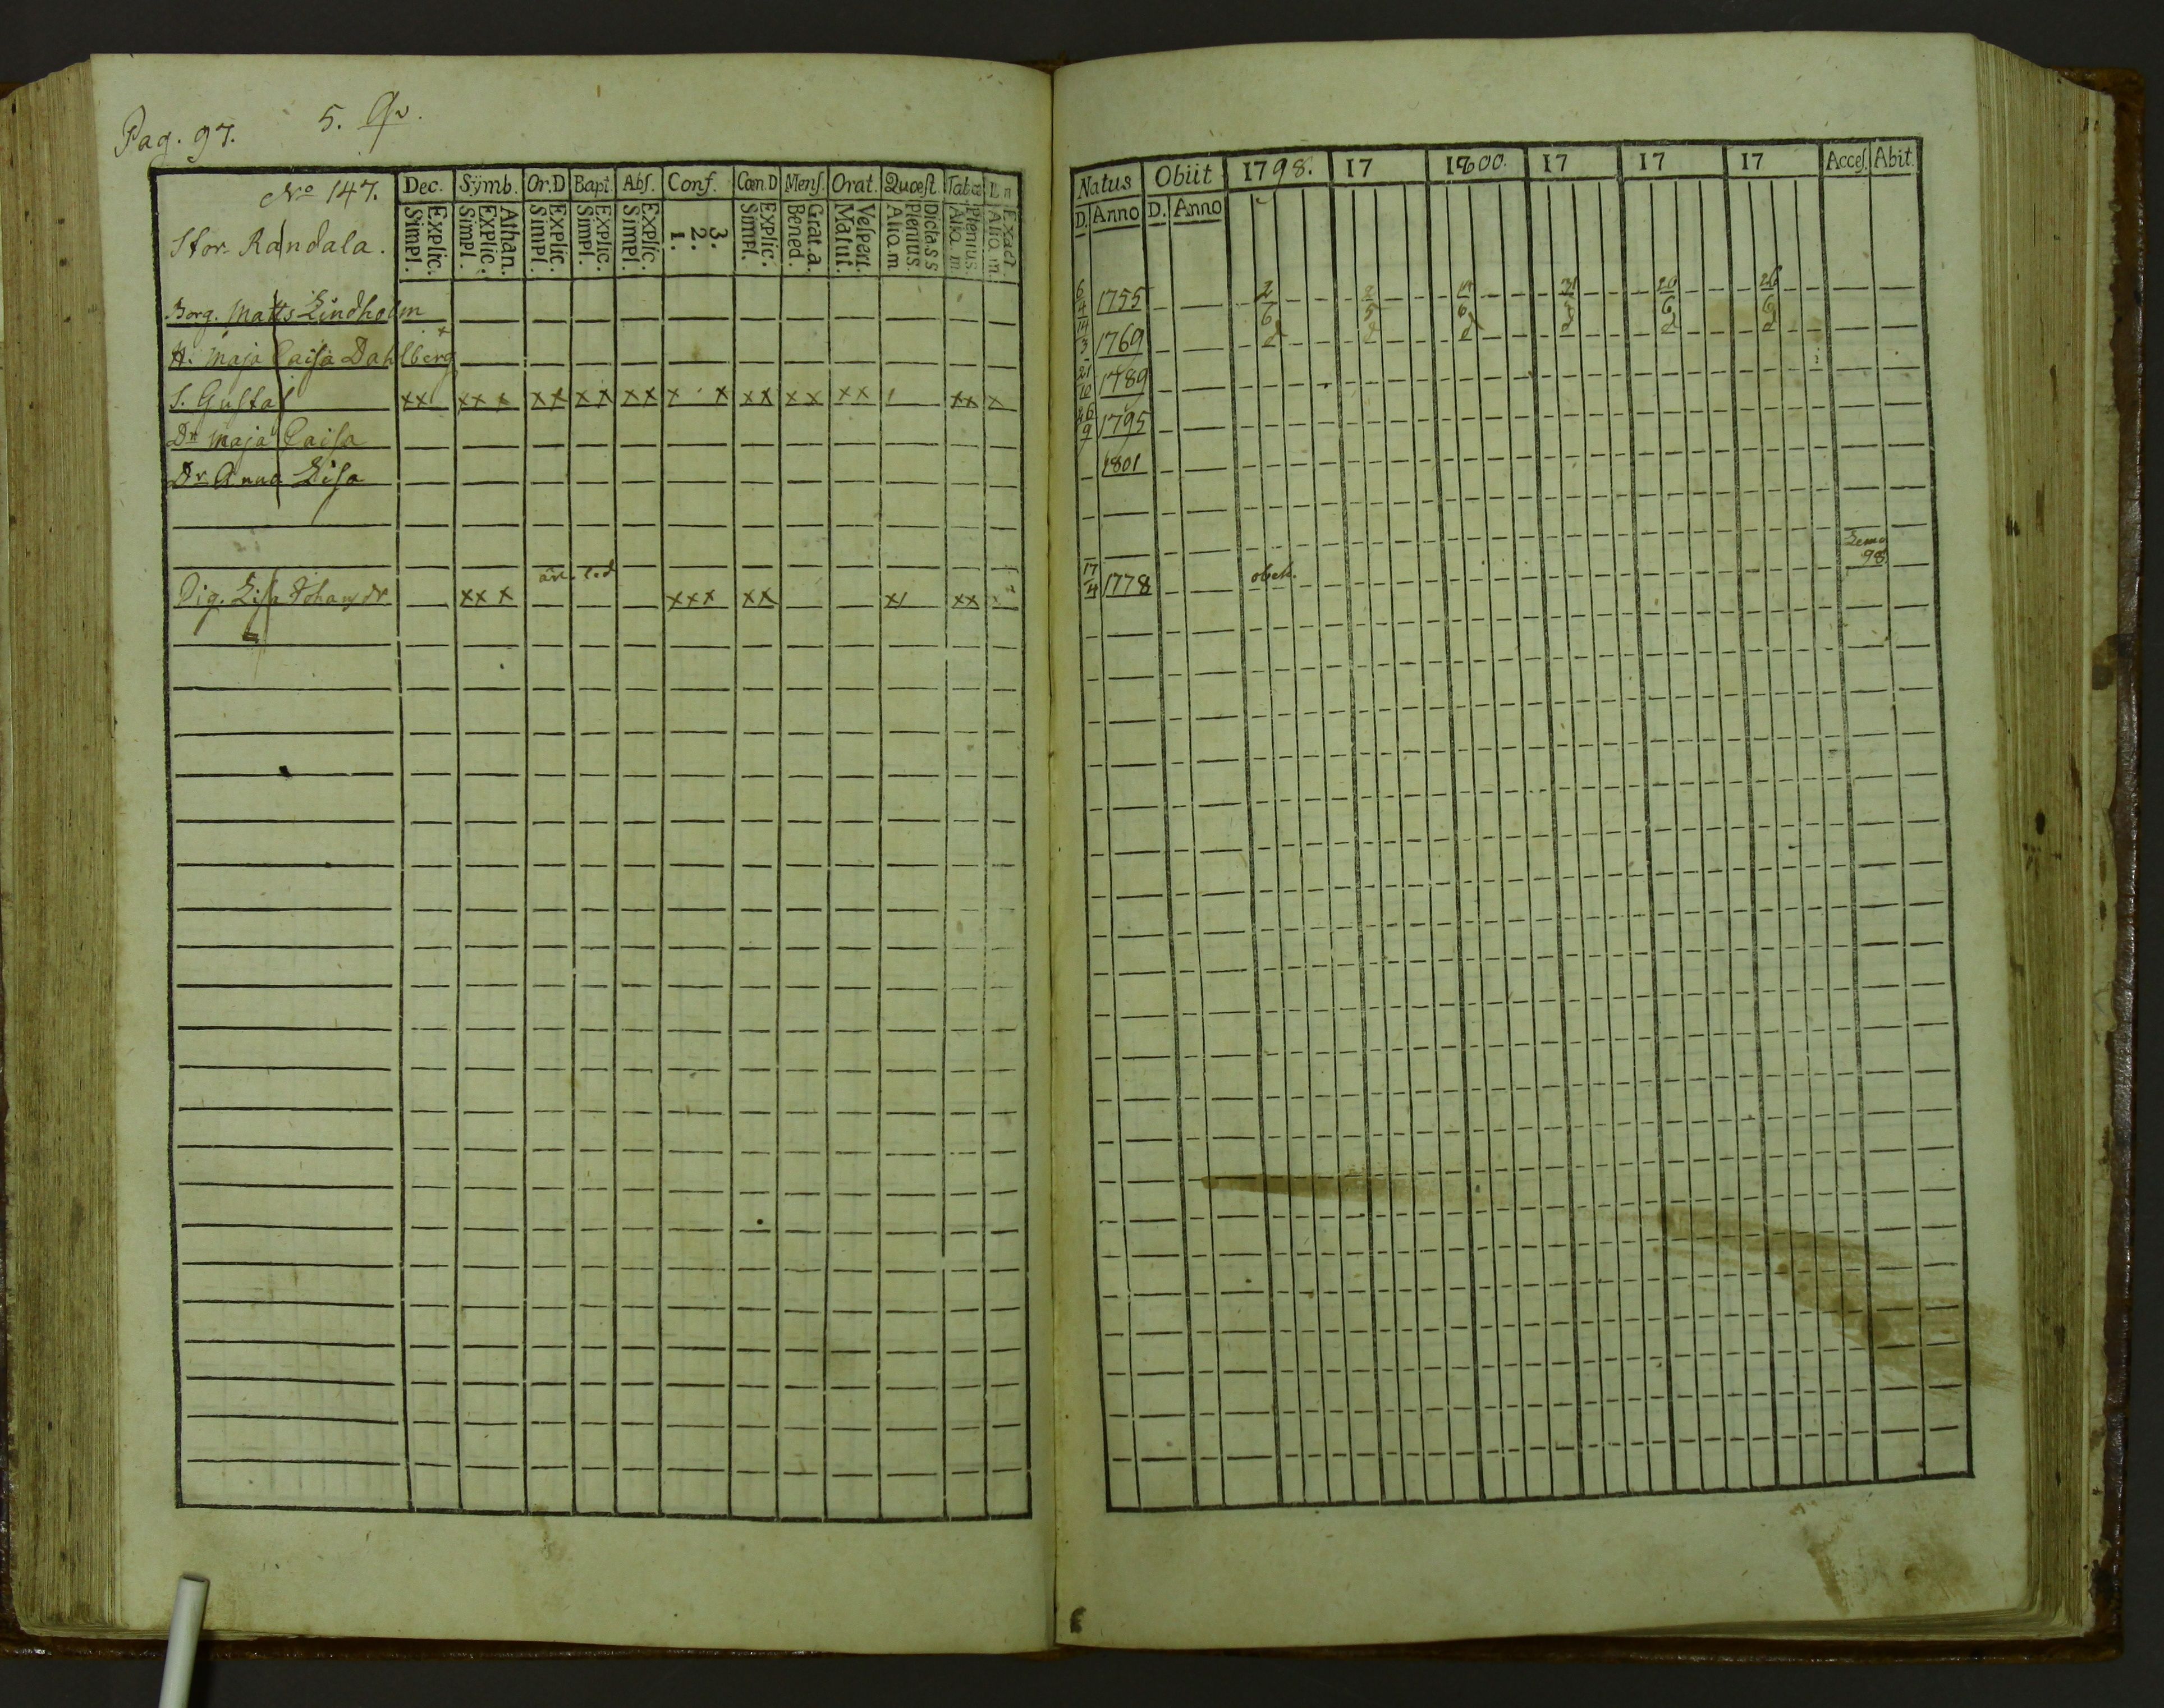 Pag. 97. 5. Qv.
No 147. Dec. Sÿmb. Or.D Bapt. Abſ. Conf. Cœn.D Menſ. Orat. Quæſt Tab.œ
Stor- Randala.
Simpl. Explic. Simpl. Explic. Athan. Simpl. Explic. Simpl. Explic. Simpl. Explic. 1. 2. 3. Simpl. Explic. Bened. Grat. a. Matut. Veſpert. Alio. m Plenius. Dicta. s s Alio. m. Plenius. Alio. m. Exact.
Borg. Matts Lindholm
H. Maja Caisa Dahlberg
S. Gustaf xx xx x xx xx xx x x xx xx xx xx x
Dr Maja Caisa
Dr Anna Lisa
Pig. Lisa Johansdr xx x xxx xx x xx
Natus Obiit 1798. 17 1800. 17 17 17 Acceſ. Abit.
D. Anno D. Anno
6 1755 2 21 20 26
14/3 1769 6 5 6 6 6
21/10 1789
26/9 1795
1801
Lemo 98
17/4 1778